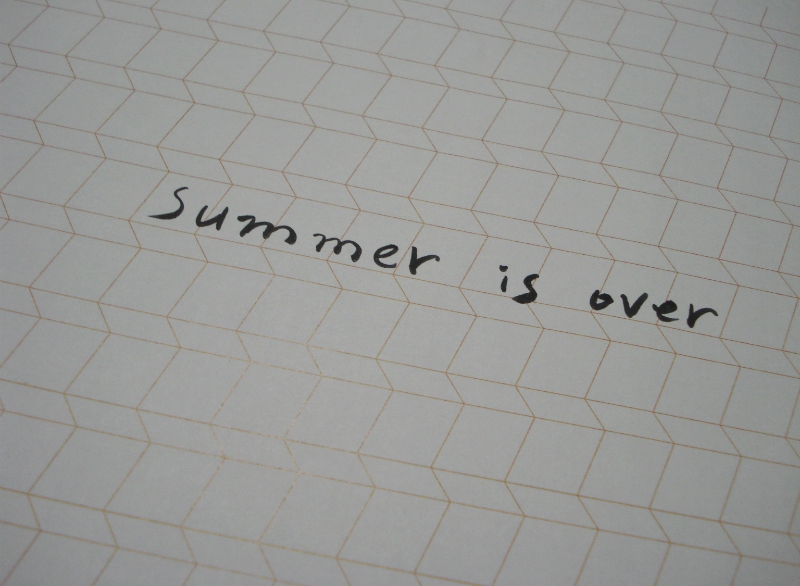 summer is over